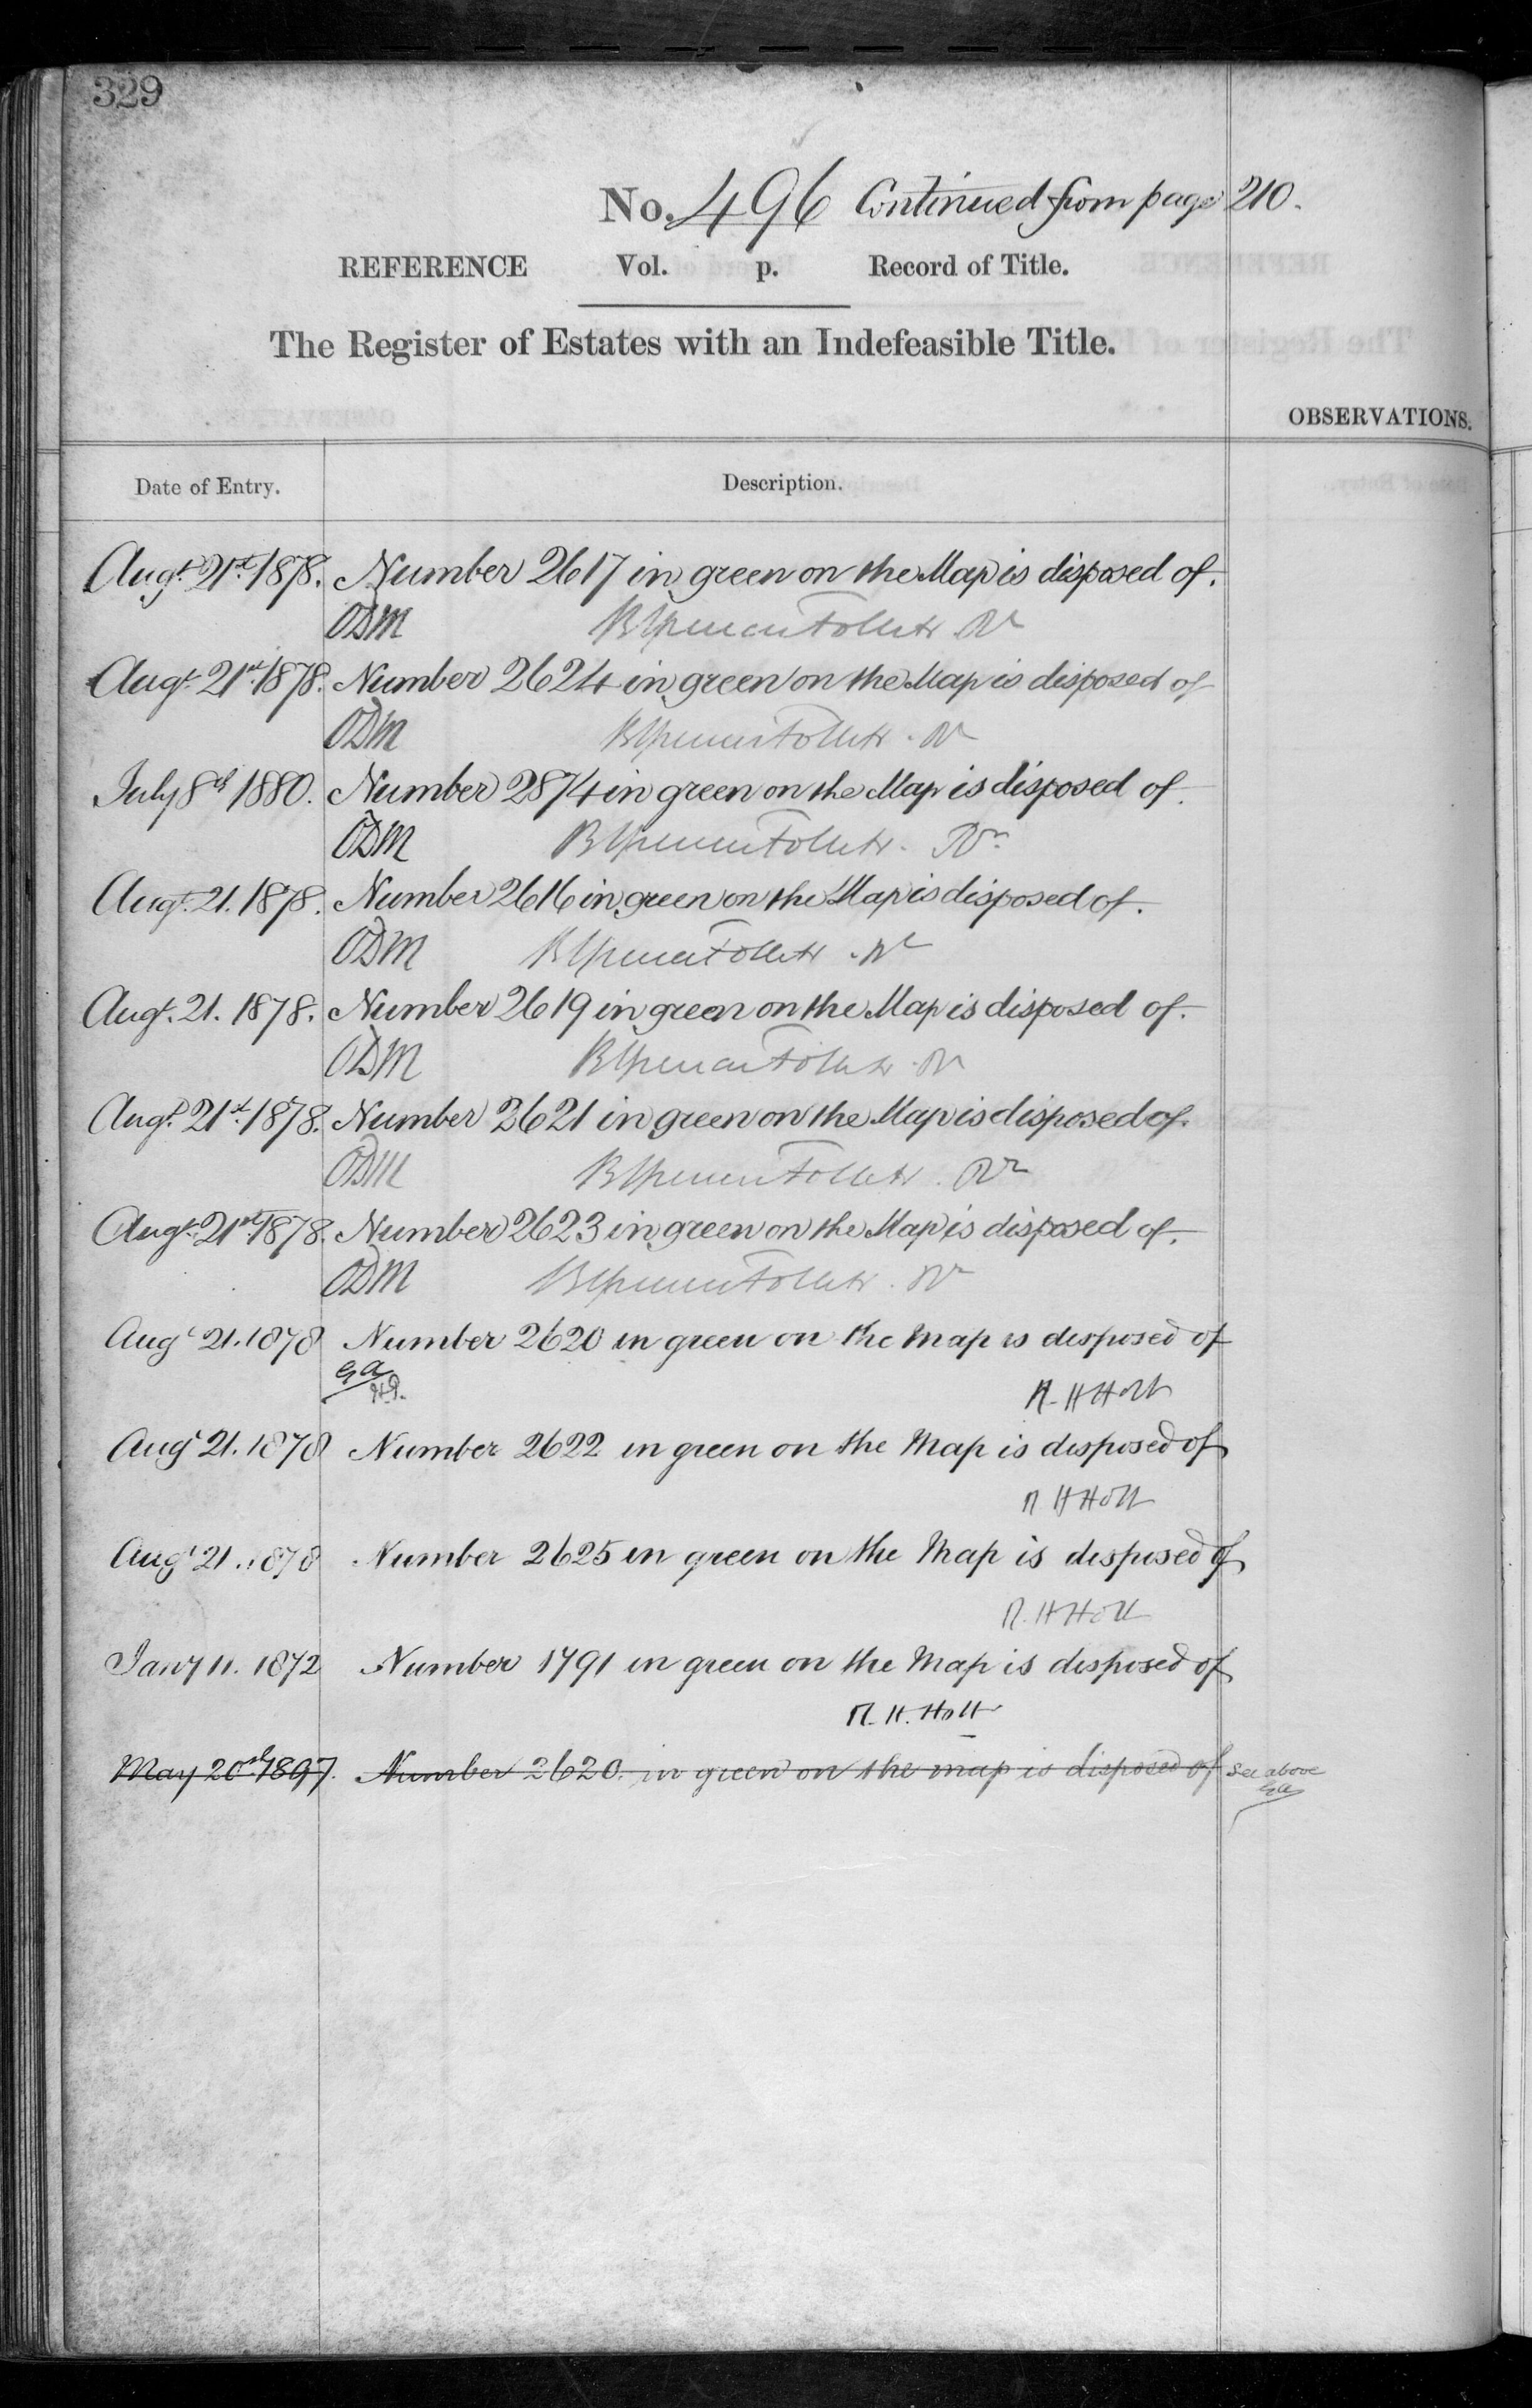 329
No. 496 Continued from page 210.
REFERENCE Vol. p. Record of Title.
The Register of Estates with an Indefeasible Title.
OBSERVATIONS.
Date of Entry. Description.
Augt. 21st. 1878. Number 2617 in green on the Map is disposed of.
ODM
Augt. 21st. 1878. Number 2624 in green on the Map is disposed of
ODM
July 8th 1880. Number 2874 in green on the Map is disposed of.
ODM
Augt. 21. 1878. Number 2616 in green on the Map is disposed of.
ODM
Augt. 21. 1878. Number 2619 in green on the Map is disposed of.
ODM
Augt. 21st. 1878. Number 2621 in green on the Map is disposed of.
ODM
Augt. 21st. 1878. Number 2623 in green on the Map is disposed of.
ODM
Augt 21. 1878 Number 2620 in green on the Map is disposed of
H Holt
Augt 21. 1878 Number 2622 in green on the Map is disposed of
H Holt
Augt 21. 1878 Number 2625 in green on the Map is disposed of
H Holt
Jany 11. 1872 Number 1791 in green on the Map is disposed of
H. Holt
May 20th 1897. Number 2620. in green on the map is disposed of see above